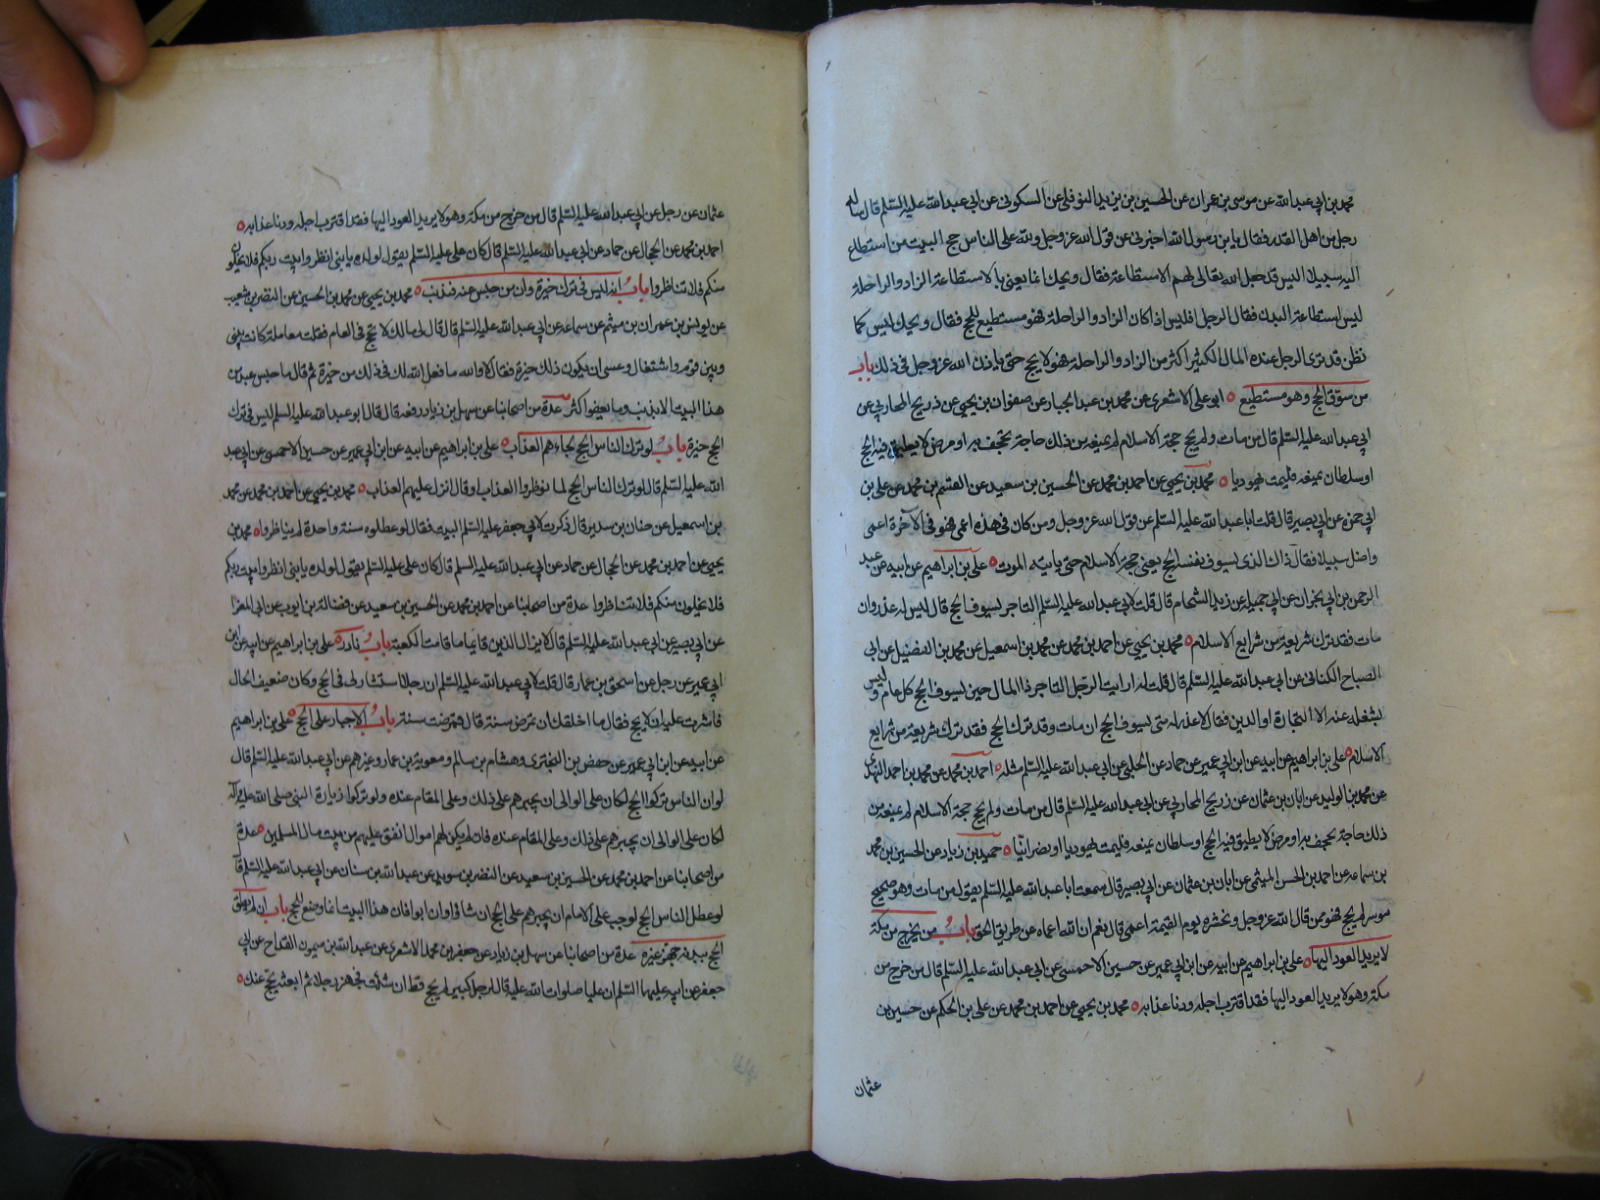 محمد بن ابي عبد الله عن موسى بن عمران عن الحسين بن يزيد النوفلى عن السكونى عن ابى عبد الله عليه السلم قال ساله
رجل من اهل القدر فقال يا بن رسول الله اخبرنى عن قول الله عز وجل ولله على الناس حج البيت من استطاع
اليه سبيلا اليس قد جعل الله تعالى لهم الاستطاعة فقال ويحك انما يعنى بالاستطاعة الزاد والراحلة
ليس استطاعة البدن فقال الرجل افليس اذا كان الزاد والراحلة فهو مستطيع للحج فقال ويحك ليس كما
تظن قد ترى الرجل عنده المال الكثير اكثر من الزاد والراحلة فهو لا يحج حتى ياذن الله عز وجل فى ذلك باب
من سوّف الحج وهو مستطيع ابو على الاشعرى عن محمد بن عبد الجبار عن صفوان بن يحيى عن ذريح المحاربى عن
ابى عبد الله عليه السلم قال من مات ولم يحج حجة الاسلام لم يمنعه من ذلك حاجة تجحف به او مرض لا يطيق فيه الحج
او سلطان يمنعه فليمت يهوديا محمد بن يحيى عن احمد بن محمد عن الحسين بن سعيد عن القسم بن محمد عن على بن
ابى حمزه عن ابى بصير قال قلت ابا عبد الله عليه السلم عن قول الله عز وجل ومن كان فى هذه اعمى فهو فى الآخرة اعمى
واضل سبيلا فقال ذاك الذى يسوف نفسه الحج يعنى حجة الاسلام حتى ياتيه الموت على بن ابراهيم عن ابيه عن عبد
الرحمن بن ابى نجران عن ابى جميله عن زيد الشحام قال قلت لابى عبد الله عليه السلم التاجر يسوف الحج قال ليس له عذر وان
مات فقد ترك شريعة من شرايع الاسلام محمد بن يحيى عن احمد بن محمد عن محمد بن اسمعيل عن محمد بن الفضيل عن ابى
الصباح الكنانى عن ابى عبد الله عليه السلم قال قلت له ارايت الرجل التاجر ذا المال حين يسوف الحج كل عام وليس
يشغله عنه الا التجارة او الدين فقال لا عذر له متى يسوف الحج ان مات وقد ترك الحج فقد ترك شريعة من شرايع
الاسلام على بن ابراهيم عن ابيه عن ابن ابى عمير عن حماد عن الحلبى عن ابى عبد الله عليه السلم مثله احمد بن محمد عن محمد بن احمد النهدى
عن محمد بن الوليد عن ابان بن عثمان عن ذريح المحاربى عن ابى عبد الله عليه السلم قال من مات ولم يحج حجة الاسلام لم يمنعه من
ذلك حاجة تجحف به او مرض لا يطيق فيه الحج او سلطان يمنعه فليمت يهوديا او نصرانيّا حميد بن زياد عن الحسين بن محمد
بن سماعه عن احمد بن الحسن الميثمى عن ابان بن عثمان عن ابى بصير قال سمعت ابا عبد الله عليه السلم يقول من مات وهو صحيح
موسر لم يحج فهو ممن قال الله عز وجل ونحشره يوم القيمة اعمى قال نعم ان الله اعماه عن طريق الحق باب من يخرج من مكة
لا يريد العود اليها على بن ابراهيم عن ابيه عن ابن ابى عمير عن حسين الاحمسى عن ابى عبد الله عليه السلم قال من خرج من
مكة وهو لا يريد العود اليها فقد اقترب اجله ودنا عذابه محمد بن يحيى عن احمد بن محمد عن على بن الحكم عن حسين بن
عثمان
عثمان عن رجل عن ابى عبد الله عليه السلم قال من خرج من مكة وهو لا يريد العود اليها فقد اقترب اجله ودنا عذابه
احمد بن محمد عن الحجال عن حماد عن ابى عبد الله عليه السلم قال كان على عليه السلم يقول لولده يا بنى انظروا بيت ربكم فلا يخلون
منكم فلا تناظروا باب انه ليس فى ترك خيرة وان من حبس عنه فبذنب محمد بن يحيى عن محمد بن الحسين عن النضر بن شعيب
عن يونس بن عمران بن ميثم عن سماعه عن ابى عبد الله عليه السلم قال قال لى مالك لا تحج فى العام فقلت معاملة كانت بينى
وبين قوم واشتغال وعسى ان يكون ذلك خيرة فقال لا والله ما فعل الله لك فى ذلك من خيرة ثم قال ما حبس عبد من
هذا البيت الا بذنب وما يعفوا اكثر عدة من اصحابنا عن سهل بن زياد رفعه قال قال ابو عبد الله عليه السلم ليس فى ترك
الحج خيرة باب لو ترك الناس الحج لجاءهم العذاب على بن ابراهيم عن ابيه عن ابن ابى عمير عن حسين الاحمسى عن ابى عبد
الله عليه السلم قال لو ترك الناس الحج لما نوظروا العذاب او قال انزل عليهم العذاب محمد بن يحيى عن احمد بن محمد عن محمد
بن اسمعيل عن حنان بن سدير قال ذكرت لابى جعفر عليه السلم البيت فقال لو عطلوه سنة واحدة لم يناظروا محمد بن
يحيى عن احمد بن محمد عن الحجال عن حماد عن ابى عبد الله عليه السلم قال كان على عليه السلم يقول لولده يا بنى انظروا بيت ربكم
فلا يخلون منكم فلا تناظروا عدة من اصحابنا عن احمد بن محمد عن الحسين بن سعيد عن فضالة بن ايوب عن ابى المغرا
عن ابى بصير عن ابى عبد الله عليه السلم قال لا يزال الدين قايما ما قامت الكعبة باب نادر على بن ابراهيم عن ابيه عن ابن
ابى عمير عن رجل عن اسحق بن عمار قال قلت لابى عبد الله عليه السلم ان رجلا استشارنى فى الحج وكان ضعيف الحال
فاشرت عليه ان لا يحج فقال ما اخلقك ان تمرض سنة قال فمرضت سنة باب الاجبار على الحج على بن ابراهيم
عن ابيه عن ابن ابى عمير عن حفص بن البخترى وهشام بن سالم ومعوية بن عمار وغيرهم عن ابى عبد الله عليه السلم قال
لو ان الناس تركوا الحج لكان على الوالى ان يجبرهم على ذلك وعلى المقام عنده ولو تركوا زيارة النبى صلى الله عليه وآله
لكان على الوالى ان يجبرهم على ذلك وعلى المقام عنده فان لم يكن لهم اموال انفق عليهم من بيت مال المسلمين عدة
من اصحابنا عن احمد بن محمد عن الحسين بن سعيد عن النضر بن سويد عن عبد الله بن سنان عن ابى عبد الله عليه السلم قال
لو عطل الناس الحج لوجب على الامام ان يجبرهم على الحج ان شاؤا وان ابوا فان هذا البيت انما وضع للحج باب ان لم يطق
الحج ببدنه جهز غيره عدة من اصحابنا عن سهل بن زياد عن جعفر بن محمد الاشعرى عن عبد الله بن ميمون القداح عن ابى
جعفر عن ابيه عليهما السلم ان عليا صلوات الله عليه قال لرجل كبير لم يحج قط ان شئت فجهز رجلا ثم ابعثه يحج عنك